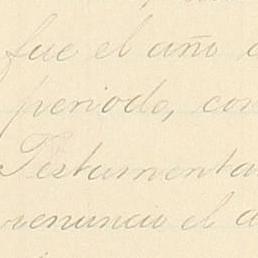 fue el año
periodo, con
Testamenta
renuncio el